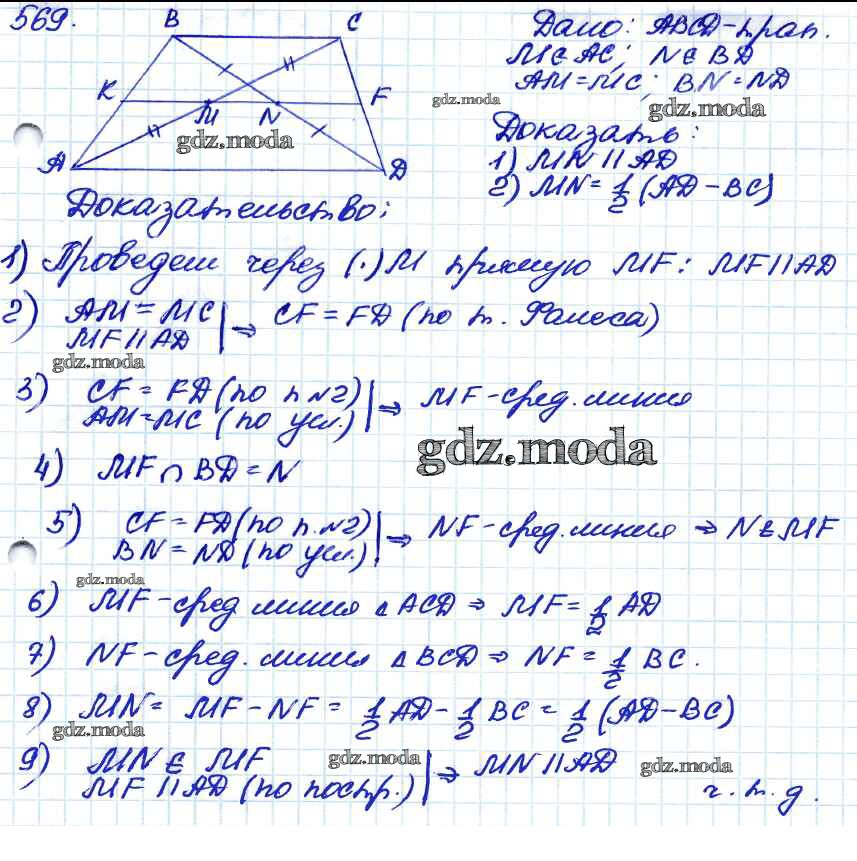 569.
B C
Дано: ABCD-трап.
M∈AC; N∈BD
AM=MC; BN=ND
K M N F
gdz.moda gdz.moda
gdz.moda
Доказать:
1) MN || AD
A D
2) MN = 1/2 (AD - BC)
Доказательство:
1) Проведем через (·) M прямую MF: MF || AD
2) AM = MC | ⇒ CF = FD (по т. Фалеса)
MF || AD
gdz.moda
3) CF = FD (по п №2) | ⇒ MF - сред. линия
AM=MC (по усл.)
gdz.moda
4) MF ∩ BD = N
5) CF = FD (по п. №2) | ⇒ NF - сред. линия ⇒ N∈MF
BN = ND (по усл.)
gdz.moda
6) MF - сред линия △ACD ⇒ MF = 1/2 AD
7) NF - сред. линия △BCD ⇒ NF = 1/2 BC.
8) MN = MF - NF = 1/2 AD - 1/2 BC = 1/2 (AD - BC)
gdz.moda
9) MN ∈ MF | ⇒ MN || AD
gdz.moda gdz.moda
MF || AD (по постр.)
ч. т. д.